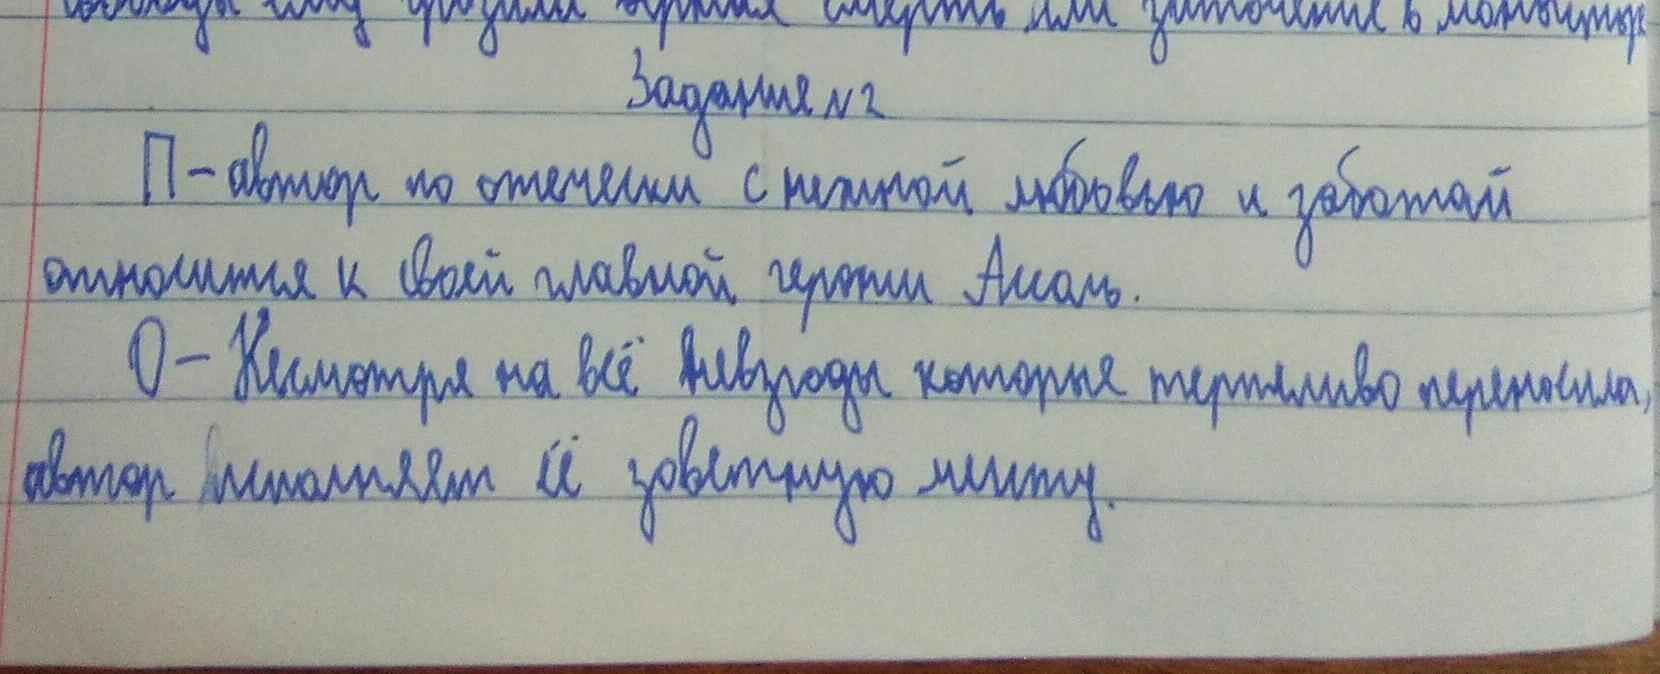 смерть или заточение в
Задание N2
П - автор по отечески с нежной любовью и заботай
относится к своей главной героини Ассоль.
О - Несмотря на всё невзгоды которые терпеливо переносила,
автор исполняет её зоветную мечту.